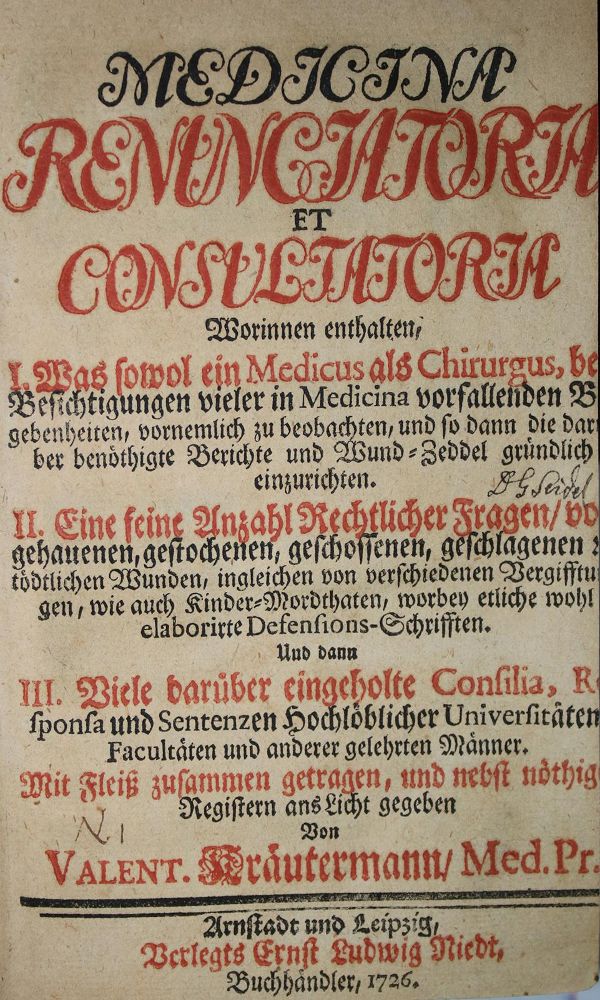 MEDICINA
RENUNCIATORIA
ET
CONSULTATORIA
Worinnen enthalten,
I. Was sowol ein Medicus als Chirurgus, be
Besichtigungen vieler in Medicina vorfallenden B
gebenheiten, vornemlich zu beobachten, und so dann die dar
ber benöthigte Berichte und Wund-Zeddel gründlich
einzurichten.
D G Seidel
II. Eine feine Anzahl Rechtlicher Fragen/ vo
gehauenen, gestochenen, geschossenen, geschlagenen
tödtlichen Wunden, ingleichen von verschiedenen Vergifftu
gen, wie auch Kinder-Mordthaten, worbey etliche wohl
elaborirte Defensions-Schrifften.
Und dann
III. Viele darüber eingeholte Consilia, Re
sponsa und Sentenzen Hochlöblicher Universitäten
Facultäten und anderer gelehrten Männer.
Mit Fleiß zusammen getragen, und nebst nöthig
Registern ans Licht gegeben
N. 1
Von
VALENT. Kräutermann/ Med. Pr.
Arnstadt und Leipzig,
Verlegts Ernst Ludwig Niedt,
Buchhändler, 1726.